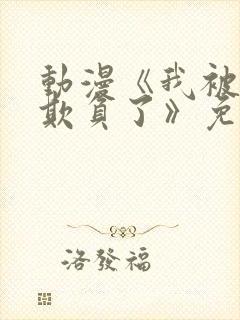 動漫《我被
欺負了》免
洛發福